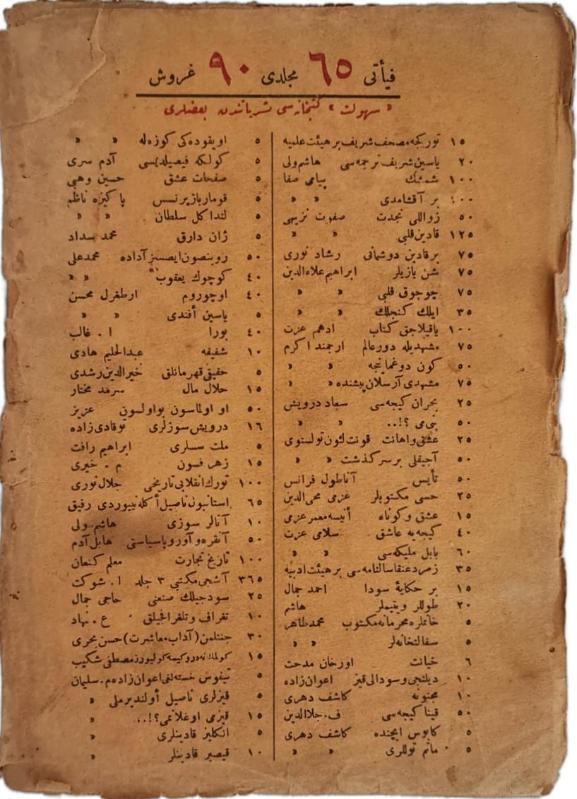 فیأتی ٦٥ مجلدی ٩٠ غروش
«سهولت» كتبخانه‌سی نشریاتندن بعضلری
١٥ توركجه مصحف شریف بر هیئت علمیه
٢٠ یاسین شریف ترجمه‌سی هاشم ولی
١٠٠ شمشك پیامی صفا
١٠٠ بر آقشامدی » »
٥٠ زواللی نجدت صفوت نزیهی
١٢٥ قادین قلبی » »
٧٥ بر قادین دوشمانی رشاد نوری
٧٥ شن یازیلر ابراهیم علاء الدین
٧٥ چوجوق قلبی » »
٣٥ ایلك كنجلك » »
١٠٠ یاقیلاجق كتاب ادهم عزت
٧٥ مشهدیله دور عالم ارجمند اكرم
٥٠ كون دوغماینجه » »
٧٥ مشهدی آرسلان پیشنده »
٢٥ بحران كیجه‌سی سعاد درویش
٥٠ بی می ؟!.. » »
٢٥ عشق واهانت قونت لئون تولستوی
٥٠ آجیقلی بر سر كذشت » »
٥٠ تأیس آناطول فرانس
٢٥ حسی مكتوبلر عزمی محی الدین
١٥ عشق و كوناه أنیسه معمر عزمی
٤٠ كیجه به عاشق سلامی عزت
٦٠ بابل ملیكه‌سی »
٣٥ زمرد عنقا سالنامه‌سی بر هیئت ادبیه
١٥ بر حكایهٔ سودا احمد جمال
٢٠ طوللر ویتیملر هاشم
٥ خانملره محرمانه مكتوب محمد طاهر
٥ سفالتخانه‌لر » »
٦ خیانت اورخان مدحت
١٠ دیلنجی و سودالی قیز اعوان زاده
١٠ مجنونه كاشف دهری
٥٠ قینا كیجه‌سی ف . جلال الدین
٥ كابوس ایچنده كاشف دهری
٥ ماتم توللری » »
٥ اویقوده كی كوزه‌له » »
٥ كولكه فیصیلدیسی آدم سری
٥ صفحات عشق حسین وهبی
٥ قومارباز پرنسس پاكیزه ناظم
٥ لندا كل سلطان » »
٥ ژان دارق محمد سداد
٥٠ روبنصون ایصسز آداده محمد علی
٤٠ كوچوك یعقوب » »
٤٠ اوچوروم ارطغرل محسن
٥ یاسین أفندی » »
٤٠ بورا ا . غالب
١٠ شفیقه عبدالحلیم هادی
١٥ حقیقی قهرمانلق خیرالدین رشدی
١٥ حلال مال سرمد مختار
٥٠ او اولماسون بو اولسون عزیز
١٦ درویش سوزلری توقادی زاده
٥ ملت سسلری ابراهیم رافت
١٥ زهر فسون م . خیری
١٠٠ تورك انقلابی تاریخی جلال نوری
٦٥ استانبول ناصیل أكله‌نییوردی رفیق
١٠ آنالر سوزی هاشم ولی
٥٠ آنقره و آوروپا سیاستی هابل آدم
١٠٠ تاریخ تجارت معلم كنعان
٣٦٥ آشجی مكتبی ٣ جلد ا . شوكت
٢٥ سودجیلك صنعتی حاجی جمال
١٠ تغراف و تلغرافجیلق ع . نهاد
٣٠ جنتلمن (آداب معاشرت) حسن بحری
١٥ مصطفی شكیب
٥ تیفوس خسته‌لغی اعوان زاده م . سلیمان
٥ قیزلری ناصیل أولندیرملی »
١٥ قیزمی اوغلانمی ؟!.. »
٥ انكلیز قادینلری »
١٠ قیصیر قادینلر »